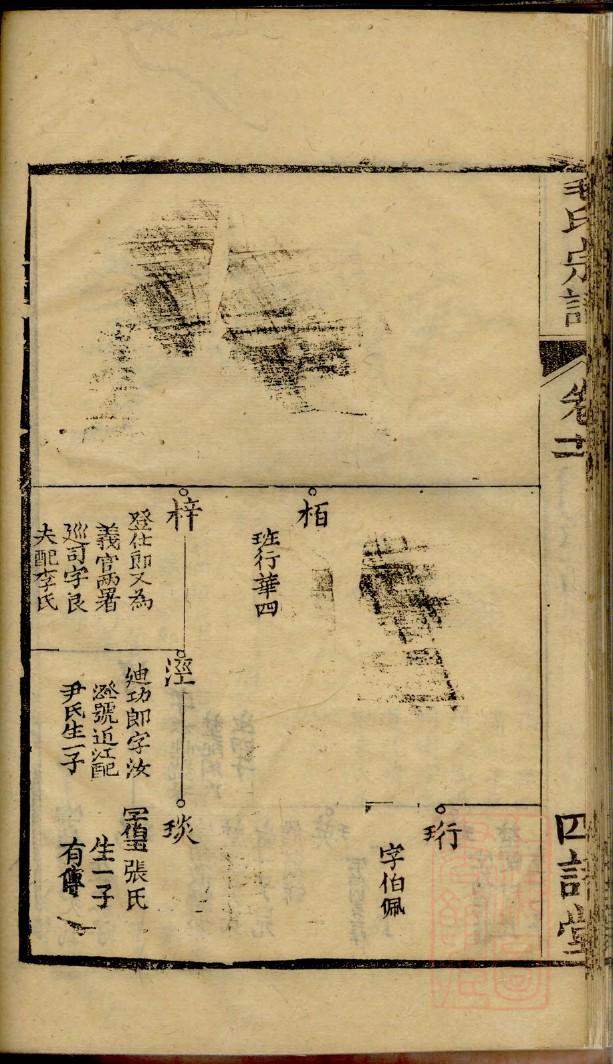 毛氏宗譜
卷十
四註堂
柏
班行華四
梓
登仕郎又為
義官兩署
廵司字良
夫配李氏
珩
字伯珮
涇
廸功郎字汝
澄號近江配
尹氏生一子
琰
張氏
生一子
有傳